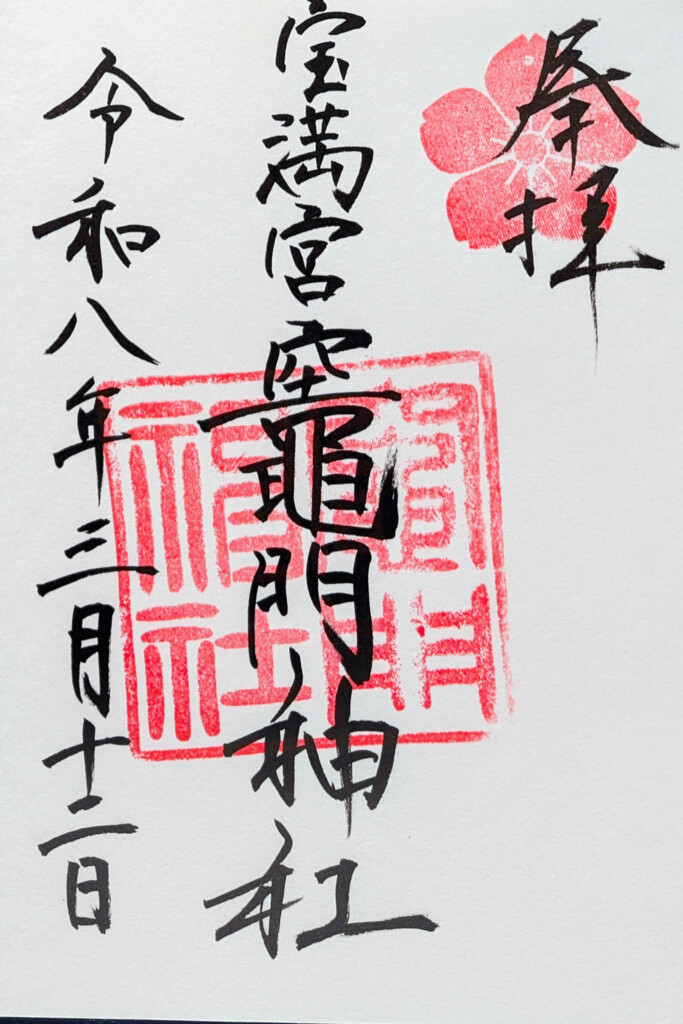 奉拝
宝満宮竈門神社
令和八年三月十二日
竈門
神社